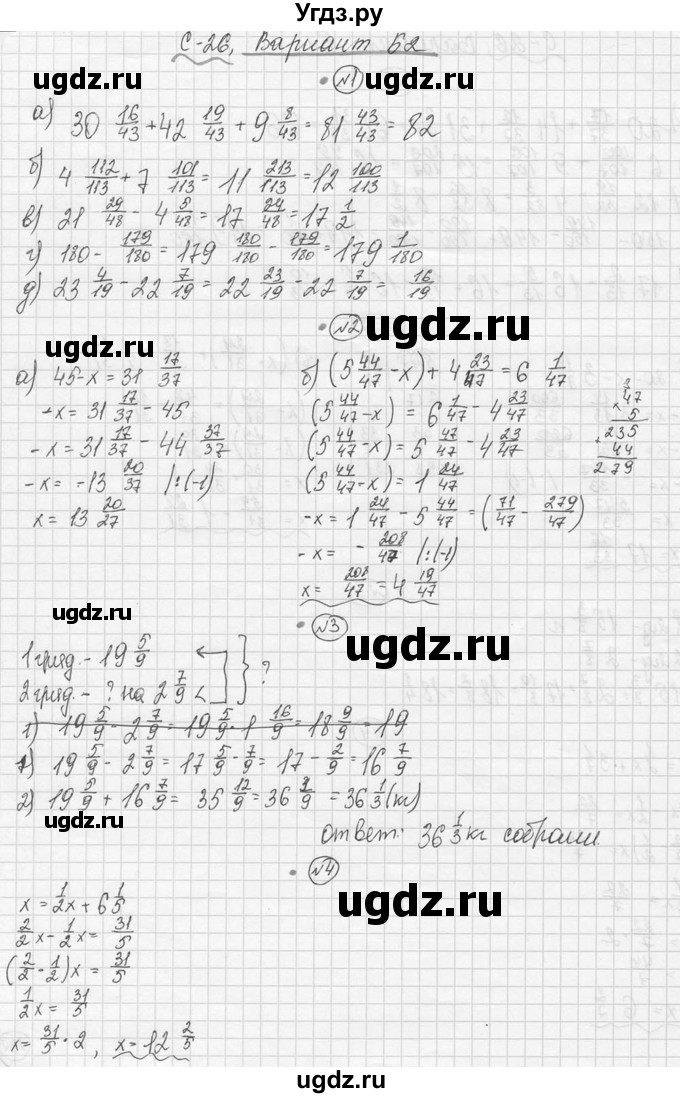 Угдз.ру
С-26, Вариант Б2
ugdz.ru ugdz.ru
№1
а) 30 16/43 + 42 19/43 + 9 8/43 = 81 43/43 = 82
б) 4 112/113 + 7 101/113 = 11 213/113 = 12 100/113
в) 21 29/48 - 4 5/48 = 17 24/48 = 17 1/2
г) 180 - 179/180 = 179 180/180 - 179/180 = 179 1/180
д) 23 4/19 - 22 7/19 = 22 23/19 - 22 7/19 = 16/19
ugdz.ru
№2
ugdz.ru
а) 45 - x = 31 17/37
- x = 31 17/37 - 45
- x = 31 17/37 - 44 37/37
- x = -13 20/37 |:(-1)
x = 13 20/27
б) (5 44/47 - x) + 4 23/47 = 6 1/47
(5 44/47 - x) = 6 1/47 - 4 23/47
(5 44/47 - x) = 5 47/47 - 4 23/47
(5 44/47 - x) = 1 24/47
- x = 1 24/47 - 5 44/47 = (71/47 - 279/47)
- x = - 208/47 |:(-1)
x = 208/47 = 4 19/47
3
× 47
5
235
+ 44
279
ugdz.ru
ugdz.ru
№3
1 гряд. - 19 5/9
2 гряд. - ? на 2 7/9 <
?
1) 19 5/9 - 2 7/9 = 19 5/9 - 1 16/9 = 18 9/9 = 19
1) 19 5/9 - 2 7/9 = 17 5/9 - 7/9 = 17 - 2/9 = 16 7/9
2) 19 5/9 + 16 7/9 = 35 12/9 = 36 3/9 = 36 1/3 (кг)
ugdz.ru
ugdz.ru
ответ: 36 1/3 кг собрали
№4
ugdz.ru
x = 1/2 x + 6 1/5
2/2 x - 1/2 x = 31/5
(2/2 - 1/2) x = 31/5
1/2 x = 31/5
x = 31/5 · 2, x = 12 2/5
ugdz.ru
ugdz.ru